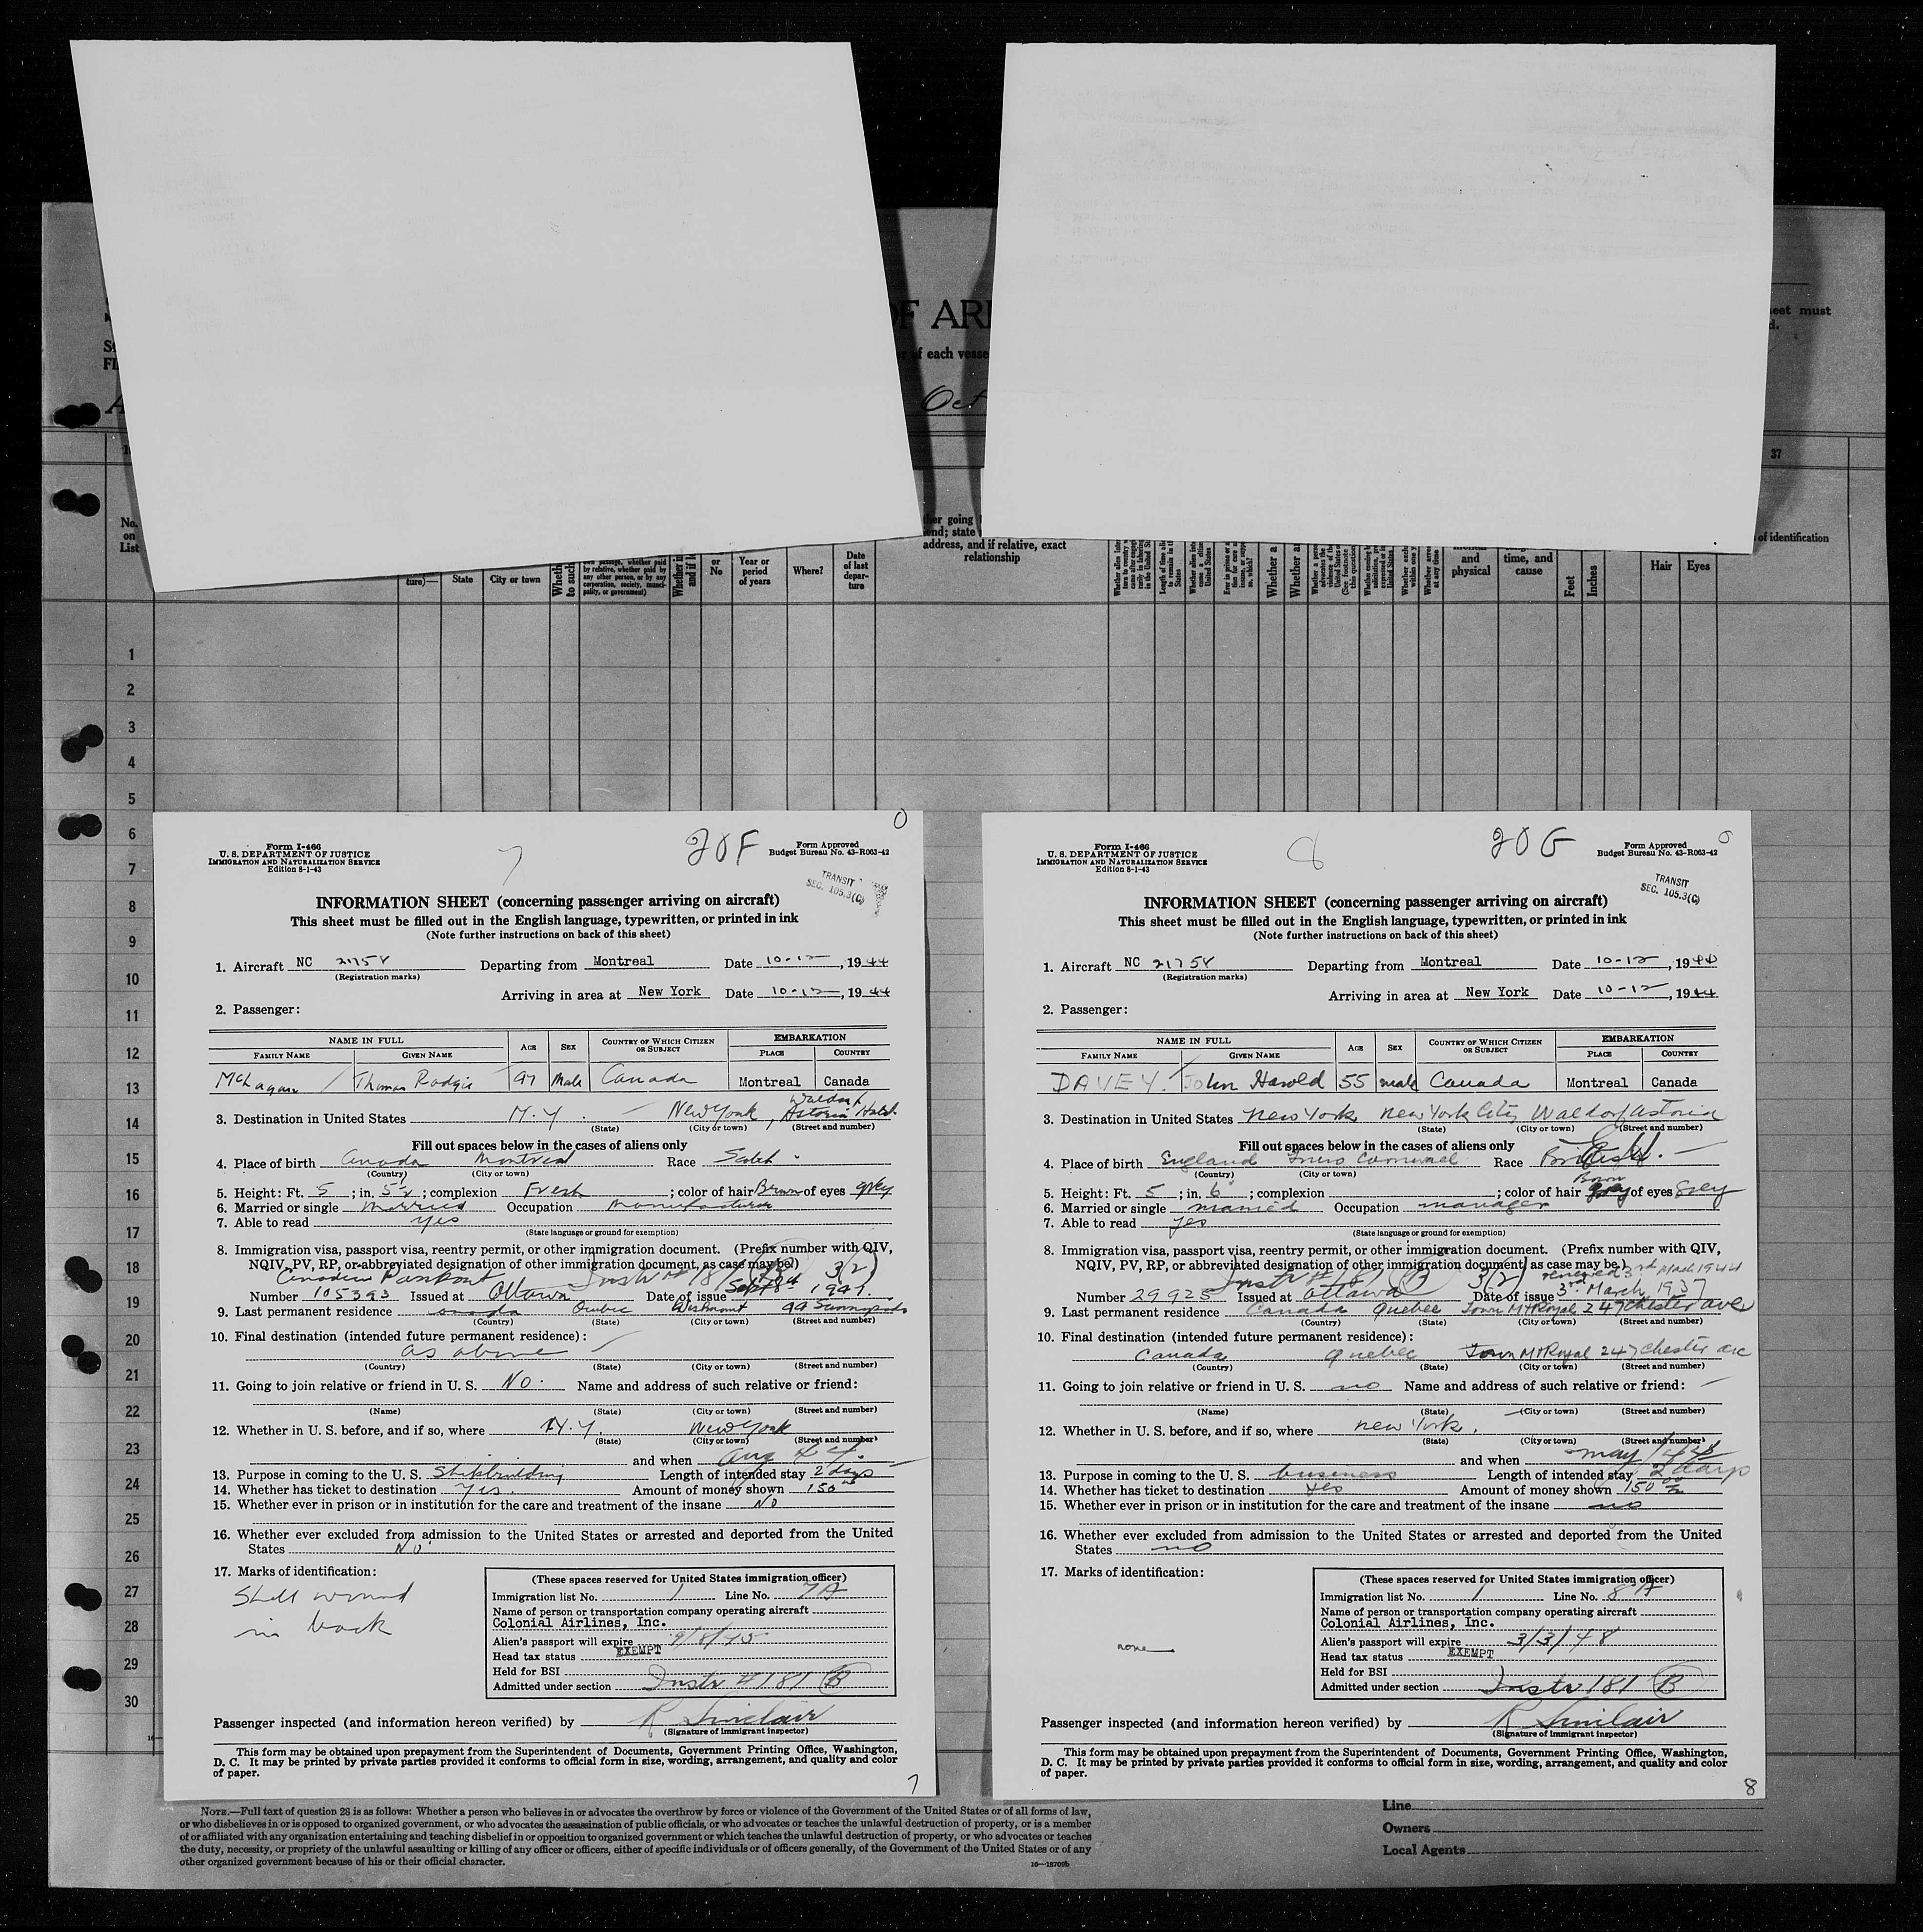 OF ARI
er of each vesse
Oct
eet must
d.
37
No.
on
List
her going
end; state
address, and if relative, exact
relationship
of identification
ture)—
State
City or town
or
No
Year or
period
of years
Where?
Date
of last
depar-
ture
and
physical
time, and
cause
Feet
Inches
Hair
Eyes
1
2
3
4
5
6
7
8
9
10
11
12
13
14
15
16
17
18
19
20
21
22
23
24
25
26
27
28
29
30
Form I-466
U. S. DEPARTMENT OF JUSTICE
IMMIGRATION AND NATURALIZATION SERVICE
Edition 8-1-43
7
20F
0
Form Approved
Budget Bureau No. 43-R063-42
TRANSIT
SEC. 105.3(C)
INFORMATION SHEET (concerning passenger arriving on aircraft)
This sheet must be filled out in the English language, typewritten, or printed in ink
(Note further instructions on back of this sheet)
1. Aircraft NC 21758 Departing from Montreal Date 10-12, 1944
(Registration marks)
Arriving in area at New York Date 10-12, 1944
2. Passenger:
NAME IN FULL
AGE
SEX
COUNTRY OF WHICH CITIZEN OR SUBJECT
EMBARKATION
FAMILY NAME
GIVEN NAME
PLACE
COUNTRY
McLagan Thomas Rodgie 47 Male Canada Montreal Canada
3. Destination in United States N.Y. New York, Waldorf Astoria Hotel.
(State) (City or town) (Street and number)
Fill out spaces below in the cases of aliens only
4. Place of birth Canada Montreal Race Scotch
(Country) (City or town)
5. Height: Ft. 5; in. 5½; complexion Fresh; color of hair Brown of eyes grey
6. Married or single Married Occupation Manufacturer
7. Able to read yes
(State language or ground for exemption)
8. Immigration visa, passport visa, reentry permit, or other immigration document. (Prefix number with QIV,
NQIV, PV, RP, or abbreviated designation of other immigration document, as case may be)
Canadian Passport Instr # 181 3(2)
Number 105393 Issued at Ottawa Date of issue Sept 8th 1941.
9. Last permanent residence Canada Quebec Westmount 49 Sunnyside
(Country) (State) (City or town) (Street and number)
10. Final destination (intended future permanent residence):
as above
(Country) (State) (City or town) (Street and number)
11. Going to join relative or friend in U. S. No. Name and address of such relative or friend:
(Name) (State) (City or town) (Street and number)
12. Whether in U. S. before, and if so, where N.Y. New York
(State) (City or town) (Street and number)
and when Aug 44.
13. Purpose in coming to the U. S. Shipbuilding Length of intended stay 2 days
14. Whether has ticket to destination Yes. Amount of money shown 150
15. Whether ever in prison or in institution for the care and treatment of the insane No
16. Whether ever excluded from admission to the United States or arrested and deported from the United
States No
17. Marks of identification:
Shell wound
in back
(These spaces reserved for United States immigration officer)
Immigration list No. 1 Line No. 7A
Name of person or transportation company operating aircraft
Colonial Airlines, Inc.
Alien's passport will expire 9/8/45
Head tax status EXEMPT
Held for BSI
Admitted under section Instr # 181 B
Passenger inspected (and information hereon verified) by R Sinclair
(Signature of immigrant inspector)
This form may be obtained upon prepayment from the Superintendent of Documents, Government Printing Office, Washington,
D. C. It may be printed by private parties provided it conforms to official form in size, wording, arrangement, and quality and color
of paper.
7
Form I-466
U. S. DEPARTMENT OF JUSTICE
IMMIGRATION AND NATURALIZATION SERVICE
Edition 8-1-43
8
20G
0
Form Approved
Budget Bureau No. 43-R063-42
TRANSIT
SEC. 105.3(C)
INFORMATION SHEET (concerning passenger arriving on aircraft)
This sheet must be filled out in the English language, typewritten, or printed in ink
(Note further instructions on back of this sheet)
1. Aircraft NC 21758 Departing from Montreal Date 10-12, 1944
(Registration marks)
Arriving in area at New York Date 10-12, 1944
2. Passenger:
NAME IN FULL
AGE
SEX
COUNTRY OF WHICH CITIZEN OR SUBJECT
EMBARKATION
FAMILY NAME
GIVEN NAME
PLACE
COUNTRY
DAVEY. John Harold 55 male Canada Montreal Canada
3. Destination in United States New York New York City Waldorf Astoria
(State) (City or town) (Street and number)
Fill out spaces below in the cases of aliens only
4. Place of birth England Truro Cornwall Race British
(Country) (City or town)
5. Height: Ft. 5; in. 6; complexion ; color of hair Brown of eyes Grey
6. Married or single married Occupation manager
7. Able to read yes
(State language or ground for exemption)
8. Immigration visa, passport visa, reentry permit, or other immigration document. (Prefix number with QIV,
NQIV, PV, RP, or abbreviated designation of other immigration document, as case may be)
Instr # 181 B 3(2) renewed 3rd March 1944
Number 29925 Issued at Ottawa Date of issue 3rd March 1937
9. Last permanent residence Canada Quebec Town Mt Royal 247 Chester ave
(Country) (State) (City or town) (Street and number)
10. Final destination (intended future permanent residence):
Canada Quebec Town Mt Royal 247 Chester ave
(Country) (State) (City or town) (Street and number)
11. Going to join relative or friend in U. S. no Name and address of such relative or friend:
(Name) (State) (City or town) (Street and number)
12. Whether in U. S. before, and if so, where New York.
(State) (City or town) (Street and number)
and when may
13. Purpose in coming to the U. S. business Length of intended stay 2 days
14. Whether has ticket to destination yes Amount of money shown 150
15. Whether ever in prison or in institution for the care and treatment of the insane no
16. Whether ever excluded from admission to the United States or arrested and deported from the United
States no
17. Marks of identification:
none
(These spaces reserved for United States immigration officer)
Immigration list No. 1 Line No. 8A
Name of person or transportation company operating aircraft
Colonial Airlines, Inc.
Alien's passport will expire 3/3/48
Head tax status EXEMPT
Held for BSI
Admitted under section Instr 181 B
Passenger inspected (and information hereon verified) by R Sinclair
(Signature of immigrant inspector)
This form may be obtained upon prepayment from the Superintendent of Documents, Government Printing Office, Washington,
D. C. It may be printed by private parties provided it conforms to official form in size, wording, arrangement, and quality and color
of paper.
8
NOTE.—Full text of question 28 is as follows: Whether a person who believes in or advocates the overthrow by force or violence of the Government of the United States or of all forms of law,
or who disbelieves in or is opposed to organized government, or who advocates the assassination of public officials, or who advocates or teaches the unlawful destruction of property, or is a member
of or affiliated with any organization entertaining and teaching disbelief in or opposition to organized government or which teaches the unlawful destruction of property, or who advocates or teaches
the duty, necessity, or propriety of the unlawful assaulting or killing of any officer or officers, either of specific individuals or of officers generally, of the Government of the United States or of any
other organized government because of his or their official character.
16—15709b
Line
Owners
Local Agents